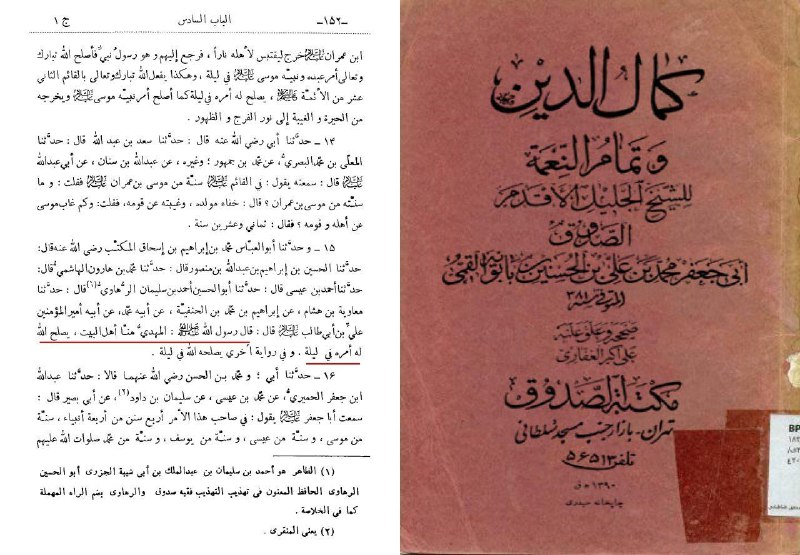 ج ١
الباب السادس
ـ١٥٢ـ
ابن عمران عليه السلام خرج ليقتبس لأهله ناراً ، فرجع إليهم وهو رسول نبيّ فأصلح الله تبارك
وتعالى أمر عبده ونبيّه موسى عليه السلام في ليلة ، وهكذا يفعل الله تبارك وتعالى بالقائم الثاني
عشر من الأئمّة عليهم السلام ، يصلح له أمره في ليلة كما أصلح أمر نبيّه موسى عليه السلام ويخرجه
من الحيرة و الغيبة إلى نور الفرج و الظهور .
١٤ ـ حدَّثنا أبي رضي الله عنه قال : حدَّثنا سعد بن عبد الله قال : حدَّثنا
المعلّى بن محمّد البصريُّ ، عن محمّد بن جمهور ؛ وغيره ، عن عبدالله بن سنان ، عن أبي عبدالله
عليه السلام قال : سمعته يقول : في القائم عليه السلام سنّة من موسى بن عمران عليه السلام فقلت : و ما
سنّته من موسى بن عمران ؟ قال : خفاء مولده ، وغيبته عن قومه ، فقلت: وكم غاب موسى
عن أهله و قومه ؟ فقال : ثماني وعشرين سنة .
١٥ ـ و حدَّثنا أبوالعبّاس محمّد بن إبراهيم بن إسحاق المكتّب رضي الله عنه قال :
حدَّثنا الحسين بن إبراهيم بن عبدالله بن منصور قال : حدَّثنا محمّد بن هارون الهاشميُّ قال:
حدَّثنا أحمد بن عيسى قال : حدَّثنا أبو الحسين أحمد بن سليمان الرُّهاويُّ(١) قال : حدَّثنا
معاوية بن هشام ، عن إبراهيم بن محمّد بن الحنفيّة ، عن أبيه محمّد ، عن أبيه أمير المؤمنين
عليِّ بن أبي طالب عليه السلام قال : قال رسول الله صلى الله عليه وآله : المهديُّ منّا أهل البيت ، يصلح الله
له أمره في ليلة . و في رواية اُخرى يصلحه الله في ليلة .
١٦ ـ حدَّثنا أبي ؛ و محمّد بن الحسن رضي الله عنهما قالا : حدَّثنا عبدالله
ابن جعفر الحميريُّ ، عن محمّد بن عيسى ، عن سليمان بن داود(٢)، عن أبي بصير قال :
سمعت أبا جعفر عليه السلام يقول : في صاحب هذا الأمر أربع سنن من أربعة أنبياء ، سنّة
من موسى ، و سنّة من عيسى ، و سنّة من يوسف ، و سنّة من محمّد صلوات الله عليهم
(١) الظاهر هو أحمد بن سليمان بن عبدالملك بن أبي شيبة الجزرى أبو الحسين
الرهاوى الحافظ المعنون فى تهذيب التهذيب فقيه صدوق . والرهاوى بضم الراء المهملة
كما فى الخلاصة .
(٢) يعنى المنقرى .
كمال الدين
وتمام النعمة
للشيخ الجليل الأقدم
الصدوق
أبي جعفر محمد بن علي بن الحسين بن بابويه القمي
المتوفى سنة ٣٨١
صححه وعلق عليه
علي أكبر الغفاري
مكتبة الصدوق
تهران - بازار جنب مسجد سلطاني
تلفن ٥٦٥١٣
١٣٩٠ ه ق
چاپخانه حیدری
BP